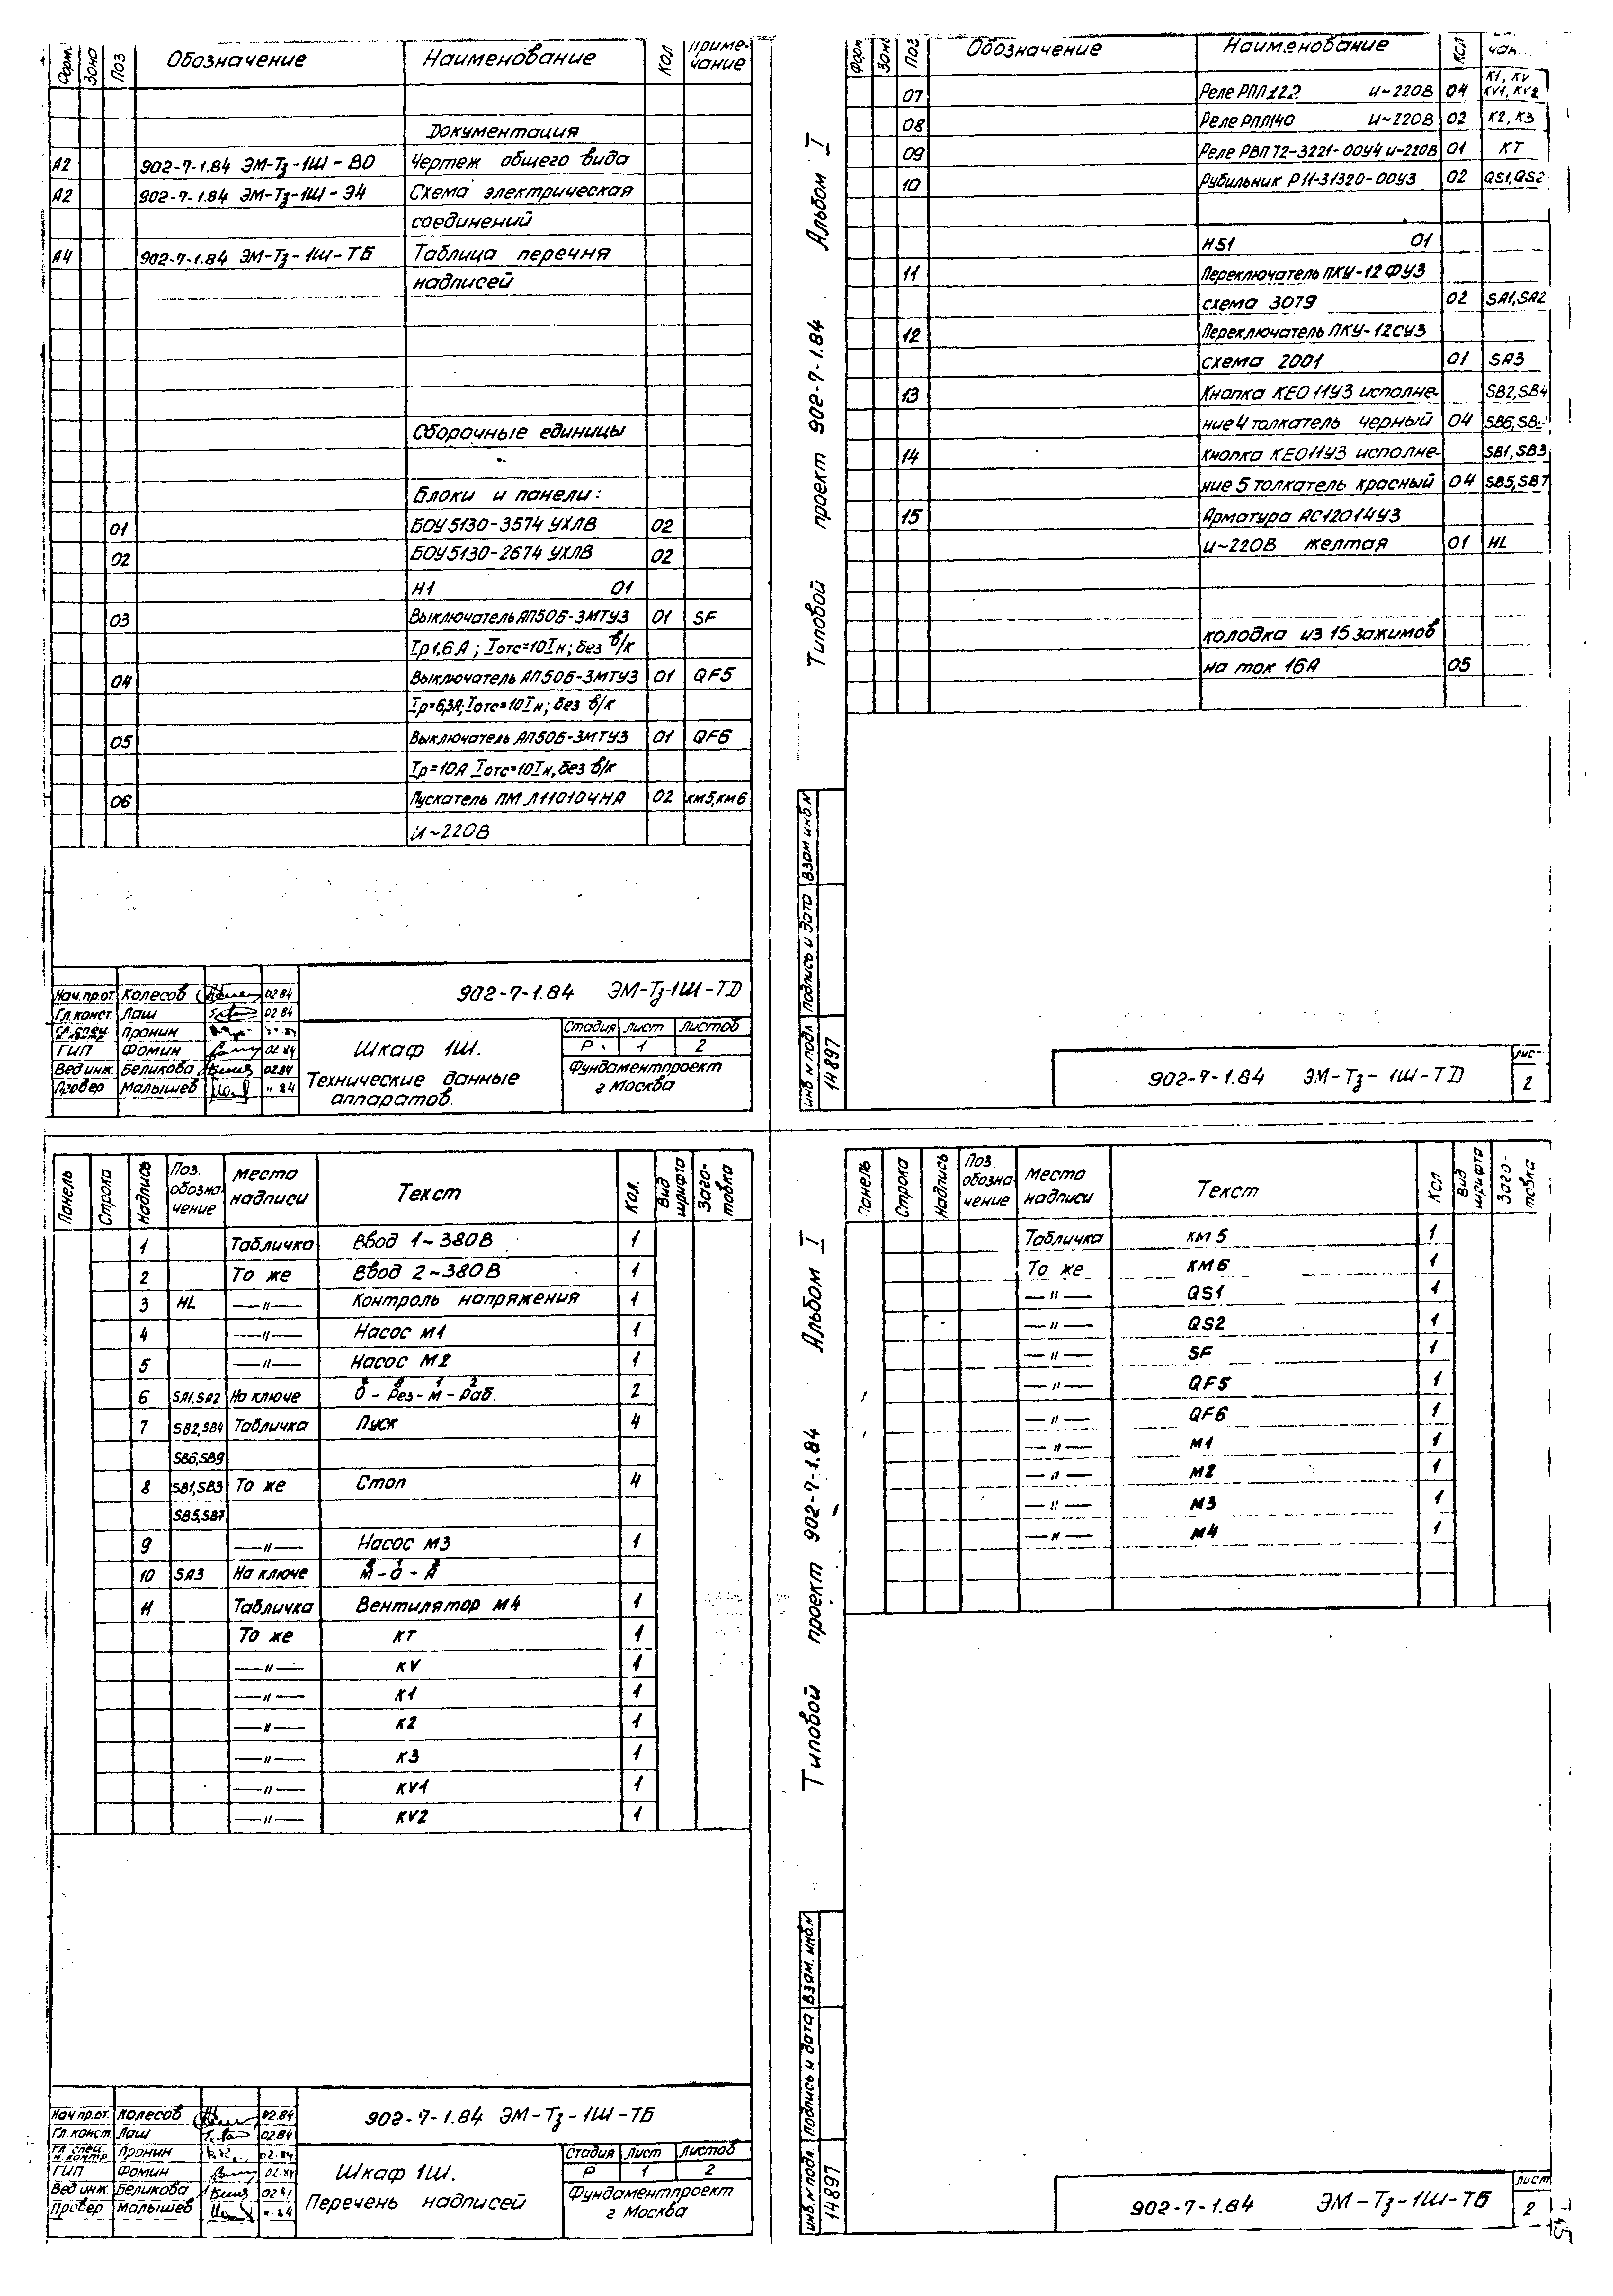 Форм. Зона Поз Обозначение Наименование Кол Примечание
Документация
А2 902-7-1.84 ЭМ-Тз-1Ш-ВО Чертеж общего вида
А2 902-7-1.84 ЭМ-Тз-1Ш-Э4 Схема электрическая
соединений
А4 902-7-1.84 ЭМ-Тз-1Ш-ТБ Таблица перечня
надписей
Сборочные единицы
Блоки и панели:
01 БОУ5130-3574 УХЛВ 02
02 БОУ5130-2674 УХЛВ 02
Н1 01
03 Выключатель АП50Б-3МТУЗ 01 SF
Iр1,6А; Iотс=10Iн; без в/к
04 Выключатель АП50Б-3МТУЗ 01 QF5
Iр=6,3А; Iотс=10Iн; без в/к
05 Выключатель АП50Б-3МТУЗ 01 QF6
Iр=10А Iотс=10Iн, без в/к
06 Пускатель ПМЛ110104НА 02 КМ5, КМ6
И~220В
Нач.пр.от. Колесов 02.84
Гл.конст. Лаш 02.84
Гл.спец. н.контр Пронин
ГИП Фомин 02.84
Вед.инж. Беликова 02.84
Провер Малышев 11.84
902-7-1.84 ЭМ-Тз-1Ш-ТД
Шкаф 1Ш.
Технические данные
аппаратов.
Стадия Лист Листов
Р 1 2
Фундаментпроект
г Москва
Типовой проект 902-7-1.84 Альбом I
Форм Зона Поз Обозначение Наименование Кол чан.
07 Реле РПЛ122 И~220В 04 К1, KV
KV1, KV2
08 Реле РПЛ140 И~220В 02 К2, К3
09 Реле РВП72-3221-00У4 И~220В 01 КТ
10 Рубильник Р11-31320-00У3 02 QS1, QS2
НS1 01
11 Переключатель ПКУ-12ФУЗ
схема 3079 02 SA1, SA2
12 Переключатель ПКУ-12СУЗ
схема 2001 01 SA3
13 Кнопка КЕО11УЗ исполне- SB2, SB4
ние 4 толкатель черный 04 SB6,
14 Кнопка КЕО11УЗ исполне- SB1, SB3
ние 5 толкатель красный 04 SB5, SB7
15 Арматура АС12014УЗ
И~220В желтая 01 HL
колодка из 15 зажимов
на ток 16А 05
инв.н подл. подпись и дата взам инв.н
14897
902-7-1.84 ЭМ-Тз-1Ш-ТД Лист
2
Панель Строка Надпись Поз. обозначение Место надписи Текст Кол. Вид шрифта Заготовка
1 Табличка Ввод 1~380В 1
2 То же Ввод 2~380В 1
3 HL —"— Контроль напряжения 1
4 —"— Насос М1 1
5 —"— Насос М2 1
6 SA1, SA2 На ключе О-Рез-М-Раб. 2
7 SB2, SB4 Табличка Пуск 4
SB6, SB9
8 SB1, SB3 То же Стоп 4
SB5, SB7
9 —"— Насос М3 1
10 SA3 На ключе М-О-А
11 Табличка Вентилятор М4 1
То же КТ 1
—"— KV 1
—"— К1 1
—"— К2 1
—"— К3 1
—"— KV1 1
—"— KV2 1
Нач пр.от. Колесов 02.84
Гл.конст Лаш 02.84
Гл.спец. н.контр. Пронин 02.84
ГИП Фомин 02.84
Вед инж. Беликова
Провер Малышев 11.84
902-7-1.84 ЭМ-Тз-1Ш-ТБ
Шкаф 1Ш.
Перечень надписей
Стадия Лист Листов
Р 1 2
Фундаментпроект
г Москва
Типовой проект 902-7-1.84 Альбом I
Панель Строка Надпись Поз. обозначение Место надписи Текст Кол Вид шрифта Заготовка
Табличка КМ5 1
То же КМ6 1
—"— QS1 1
—"— QS2 1
—"— SF 1
—"— QF5 1
—"— QF6 1
—"— М1 1
—"— М2 1
—"— М3 1
—"— М4 1
инв.н подл. Подпись и дата Взам. инв.н
14897
902-7-1.84 ЭМ-Тз-1Ш-ТБ Лист
2